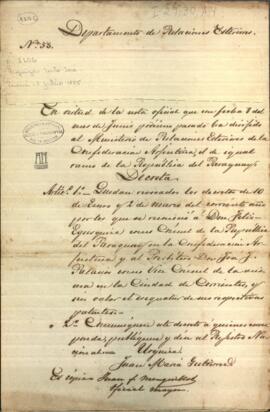 Departamento de Relaciones Exteriores.
Nº 53.
En virtud de la nota oficial que con fecha 8 del
mes de Junio próximo pasado ha dirijido
al Ministerio de Relaciones Exteriores de la
Confederacion Argentina, el de igual
ramo de la República del Paraguay,
Decreta
1º Quedan revocados los decretos de 10
de Enero y 2 de Marzo del corriente año
por los que se reconoció á Don Felix
Eguzquiza como Consul de la República
del Paraguay en la Confederacion Ar-
gentina y al Don José J.
Palacios como Vice Consul de la misma
en la Ciudad de Corrientes, y
sin valor el de sus respectivas
patentes.
2º Comuníquese este decreto á quienes corres-
ponda, publíquese y dese al Registro Na-
cional. Urquiza
Juan María Gutierrez
Es copia Juan F.
Oficial mayor